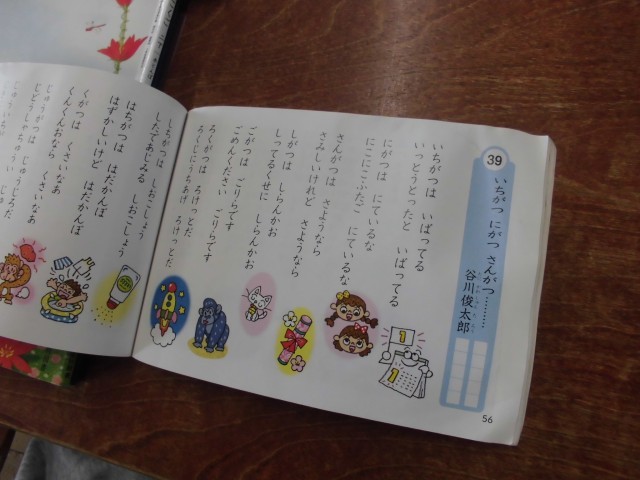 39
いちがつ にがつ さんがつ………
谷川俊太郎
いちがつは いばってる
いっとうとったと いばってる
にがつは にているな
にこにこふたご にているな
さんがつは さようなら
さみしいけれど さようなら
しがつは しらんかお
しってるくせに しらんかお
ごがつは ごりらです
ごめんください ごりらです
ろくがつは ろけっとだ
ろくじにうちあげ ろけっとだ
しちがつは しおこしょう
したであじみる しおこしょう
はちがつは はだかんぼ
はずかしいけど はだかんぼ
くがつは くさいなあ
くんくんおなら くさいなあ
じゅうがつは じゅうじろだ
1
1
56